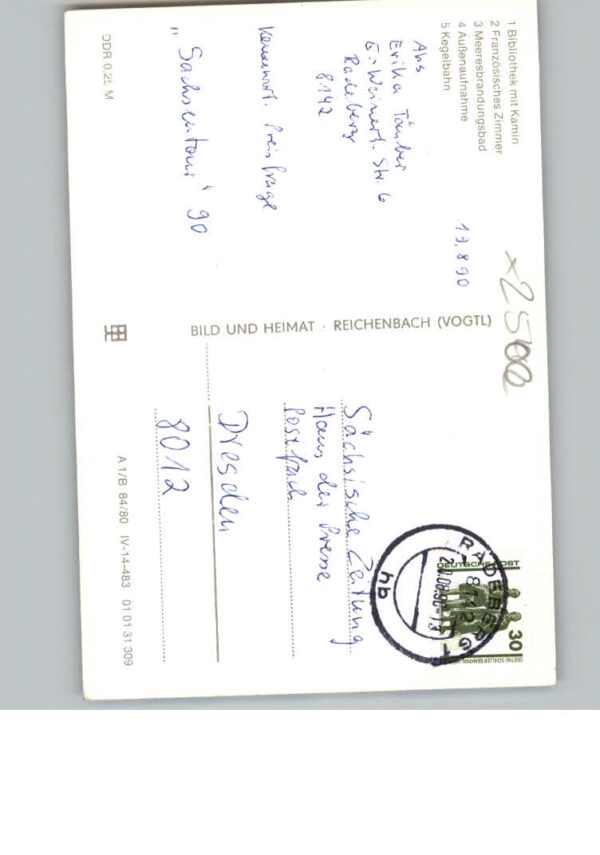 1 Bibliothek mit Kamin
2 Französisches Zimmer
3 Meeresbrandungsbad
4 Außenaufnahme
5 Kegelbahn
19.8 90
Abs
Erika Täuber
E.-Weinert-Str. 6
Radeberg
8142
Kennwort: Preisfrage
"Sachsentour" 90
DDR 0.25 M
BILD UND HEIMAT · REICHENBACH (VOGTL)
x2500
DEUTSCHE POST
30
RADEBERG
8142
20.08.90-13
hb
Sächsische Zeitung
Haus der Presse
Postfach
Dresden
8012
A 1/B 84/80 IV-14-483 01 01 31 309